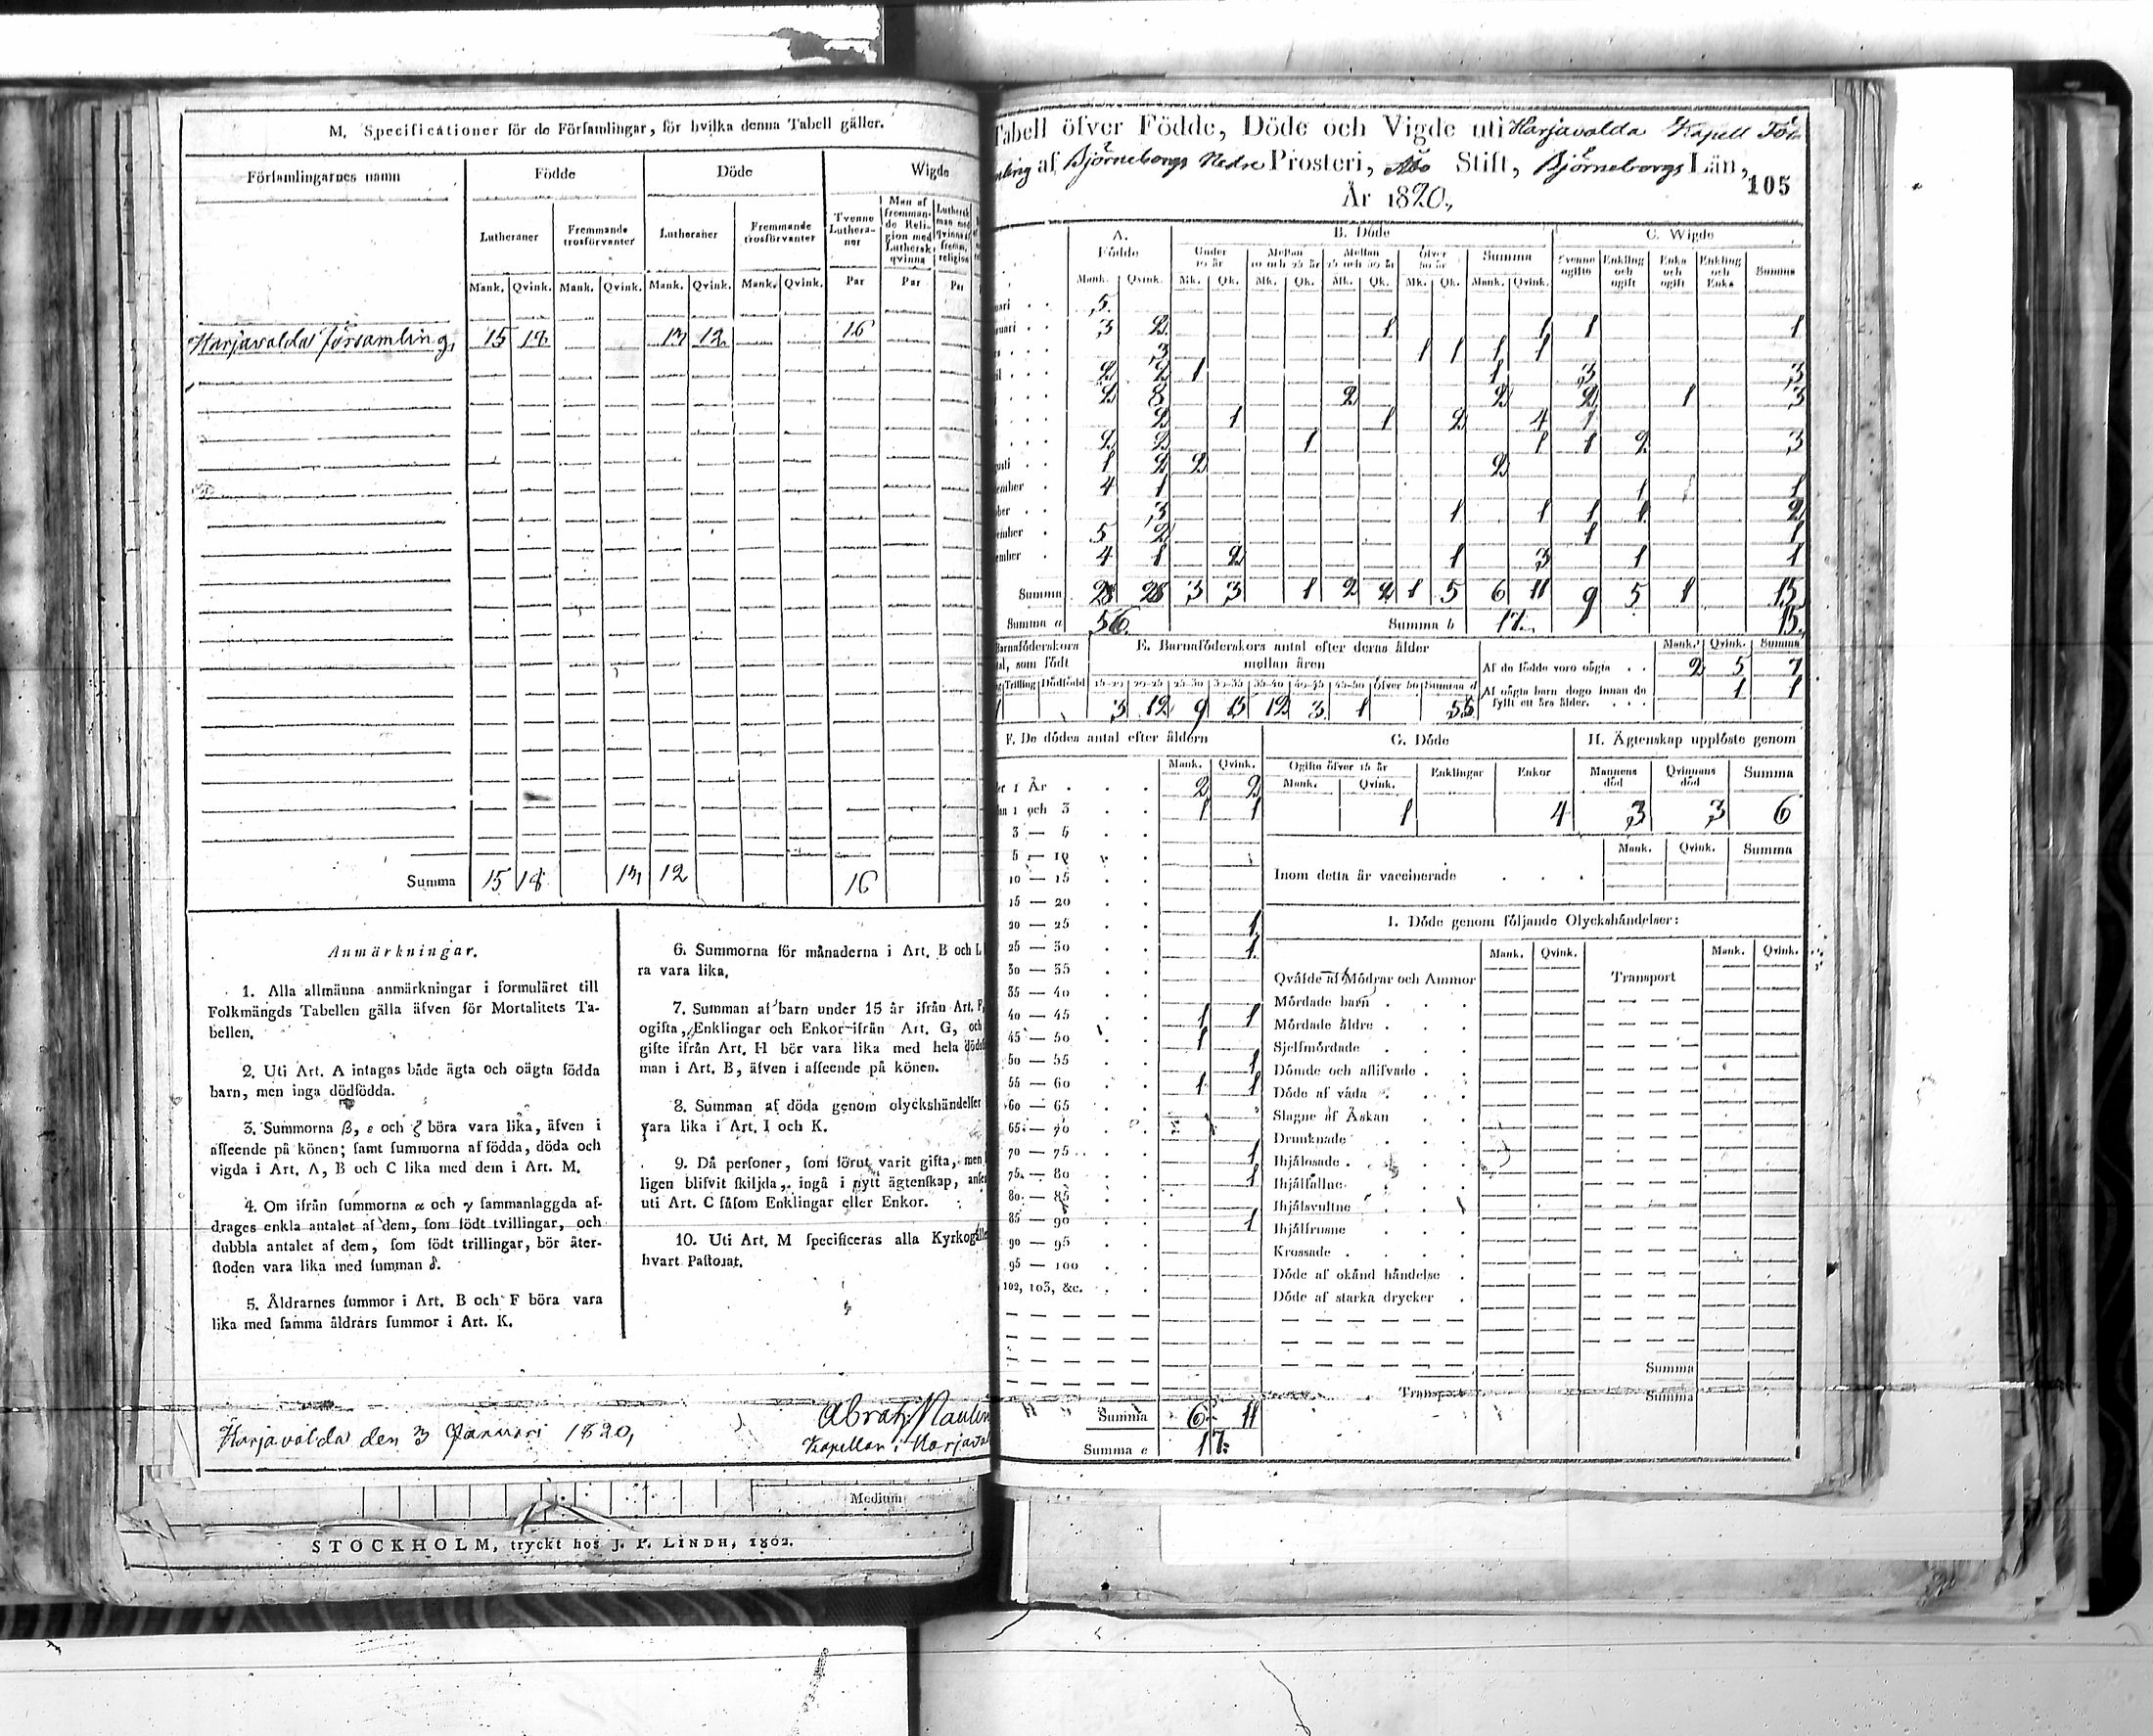 M. Specificationer för de Församlingar, för hvilka denna Tabell gäller.
Församlingarnes namn
Födde Döde Wigde
Lutheraner Fremmande trosförvanter Lutheraner Fremmande trosförvanter Tvenne Luthera-ner Man af fremman-de Reli-gion med Luthersk qvinna
Mank. Qvink. Mank. Qvink. Mank. Qvink. Mank. Qvink. Par Par Par
Harjavalda församling, 15 18 13 12 16
Summa 15 18 13 12 16
Anmärkningar.
1. Alla allmänna anmärkningar i formuläret till
Folkmängds Tabellen gälla äfven för Mortalitets Ta-
bellen.
2. Uti Art. A intagas både ägta och oägta födda
barn, men inga dödfödda.
3. Summorna β, ε och ζ böra vara lika, äfven i
afseende på könen; samt summorna af födda, döda och
vigda i Art. A, B och C lika med dem i Art. M.
4. Om ifrån summorna α och γ sammanlaggda af-
drages enkla antalet af dem, som födt tvillingar, och
dubbla antalet af dem, som födt trillingar, bör åter-
stoden vara lika med summan δ.
5. Åldrarnes summor i Art. B och F böra vara
lika med samma åldrars summor i Art. K.
6. Summorna för månaderna i Art. B och L
ra vara lika.
7. Summan af barn under 15 år ifrån Art. F,
ogifta, Enklingar och Enkor ifrån Art. G, och
gifte ifrån Art. H bör vara lika med hela döds
man i Art. B, äfven i afseende på könen.
8. Summan af döda genom olyckshändelser
vara lika i Art. I och K.
9. Då personer, som förut varit gifta, men
ligen blifvit skiljda, ingå i nytt ägtenskap, anses
uti Art. C såsom Enklingar eller Enkor.
10. Uti Art. M specificeras alla Kyrkogälle
hvart Pastorat.
Harjavalda den 3 Januari 1820,
Kapellan i Harjaval
Medium
STOCKHOLM, tryckt hos J. P. LINDH, 1802.
Tabell öfver Födde, Döde och Vigde uti Harjavalda Kapell För
mling af Björneborgs Nedre Prosteri, Åbo Stift, Björneborgs Län,
År 1820. 105
A. Födde B. Döde C. Wigde
Under 10 år Mellan 10 och 25 år Mellan 25 och 50 år Öfver 50 år Summa Tvenne ogifte Enkling och ogift Enka och ogift Enkling och Enka Summa
Mank. Qvink. Mk. Qk. Mk. Qk. Mk. Qk. Mk. Qk. Mank. Qvink.
uari 5
ruari 3 2 1 1 1 1
s 3 1 1 1 1
il 2 2 1 1 3 3
2 3 2 2 2 1 3
2 1 1 2 4 1
2 2 1 1 1 2 3
usti 1 2 2 2
ember 4 1 1 1
ber 3 1 1 1 1 2
ember 5 2 1 1
ember 4 1 2 1 3 1 1
Summa 28 28 3 3 1 2 2 1 5 6 11 9 5 1 15
Summa a 56. Summa b 17. 15.
Barnaföderskors
tal, som födt
Trilling Dödfödd
E. Barnaföderskors antal efter deras ålder
mellan åren
15-20 20-25 25-30 30-35 35-40 40-45 45-50 Öfver 50 Summa d
3 12 9 15 12 3 1 55
Mank. Qvink. Summa
Af de födde voro oägta 2 5 7
Af oägta barn dogo innan de
fyllt ett års ålder. 1 1
F. De dödes antal efter åldern
Mank. Qvink.
er 1 År 2 2
an 1 och 3 1 1
3 — 5
5 — 10
10 — 15
15 — 20
20 — 25 1
25 — 30 1
30 — 35
35 — 40
40 — 45 1 1
45 — 50 1
50 — 55 1
55 — 60 1 1
60 — 65
65 — 70
70 — 75 1
75 — 80 1
80 — 85
85 — 90 1
90 — 95
95 — 100
102, 103, &c.
Summa 6 11
Summa e 17.
G. Döde
Ogifte öfver 15 år Enklingar Enkor
Mank. Qvink.
1 4
H. Ägtenskap upplöste genom
Mannens död Qvinnans död Summa
3 3 6
Mank. Qvink. Summa
Inom detta år vaccinerade
I. Döde genom följande Olyckshändelser:
Mank. Qvink. Mank. Qvink.
Qväfde af Mödrar och Ammor Transport
Mördade barn
Mördade äldre
Sjelfmördade
Dömde och aflifvade
Döde af våda
Slagne af Åskan
Drunknade
Ihjälosade
Ihjälfallne
Ihjälsvultne
Ihjälfrusne
Krossade
Döde af okänd händelse
Döde af starka drycker
Summa
Transport Summa